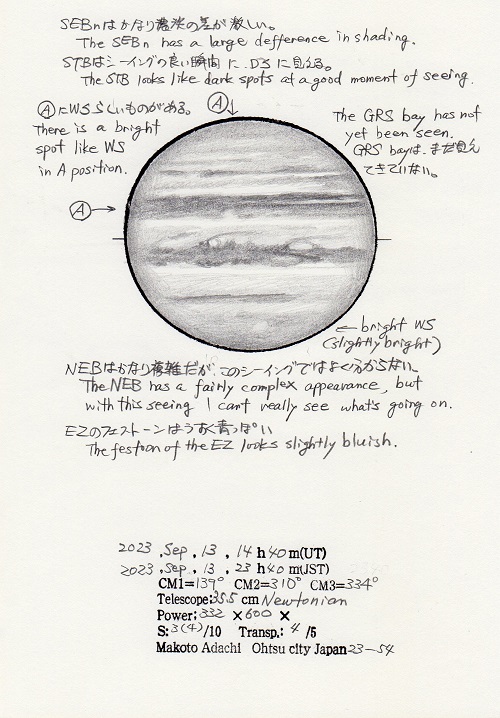 SEBnはかなり濃淡の差が激しい。
The SEBn has a large defference in shading.
STBはシーイングの良い瞬間に、DSに見える。
The STB looks like dark spots at a good moment of seeing.
ⒶにWSらしいものがある。
There is a bright
spot like WS
in A position.
Ⓐ↓
The GRS bay has not
yet been seen.
GRS bayは、まだ見え
てきていない。
Ⓐ→
← bright WS
(slightly bright)
NEBはかなり複雑だが、このシーイングではよく分からない。
The NEB has a fairly complex appearance, but
with this seeing I can't really see what's going on.
EZのフェストーンはうすく青っぽい
The festoon of the EZ looks slightly bluish.
2023 ,Sep , 13 , 14 h 40 m(UT)
2023 ,Sep , 13 , 23 h 40 m(JST)
CM1=139° CM2=310° CM3=334°
Telescope:35.5 cm Newtonian
Power:332 ×600 ×
S:3(4)/10 Transp.: 4 /5
Makoto Adachi Ohtsu city Japan 23-54